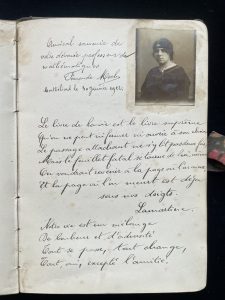 Amical souvenir de
votre dernier professeur de
mathématiques
Le livre de la vie est le livre suprême
Qu'on ne peut ni fermer ni ouvrir à son choix
Le passage attachant ne s'y lit pas deux fois
Mais le feuillet fatal se tourne de lui-même
On voudrait revenir à la page où l'on aime
Et la page où l'on meurt est déjà
sous nos doigts.
Lamartine
Notre vie est un mélange
De bonheur et d'adversité
Tout se passe, tout change,
Tout, oui, excepté l'amitié.